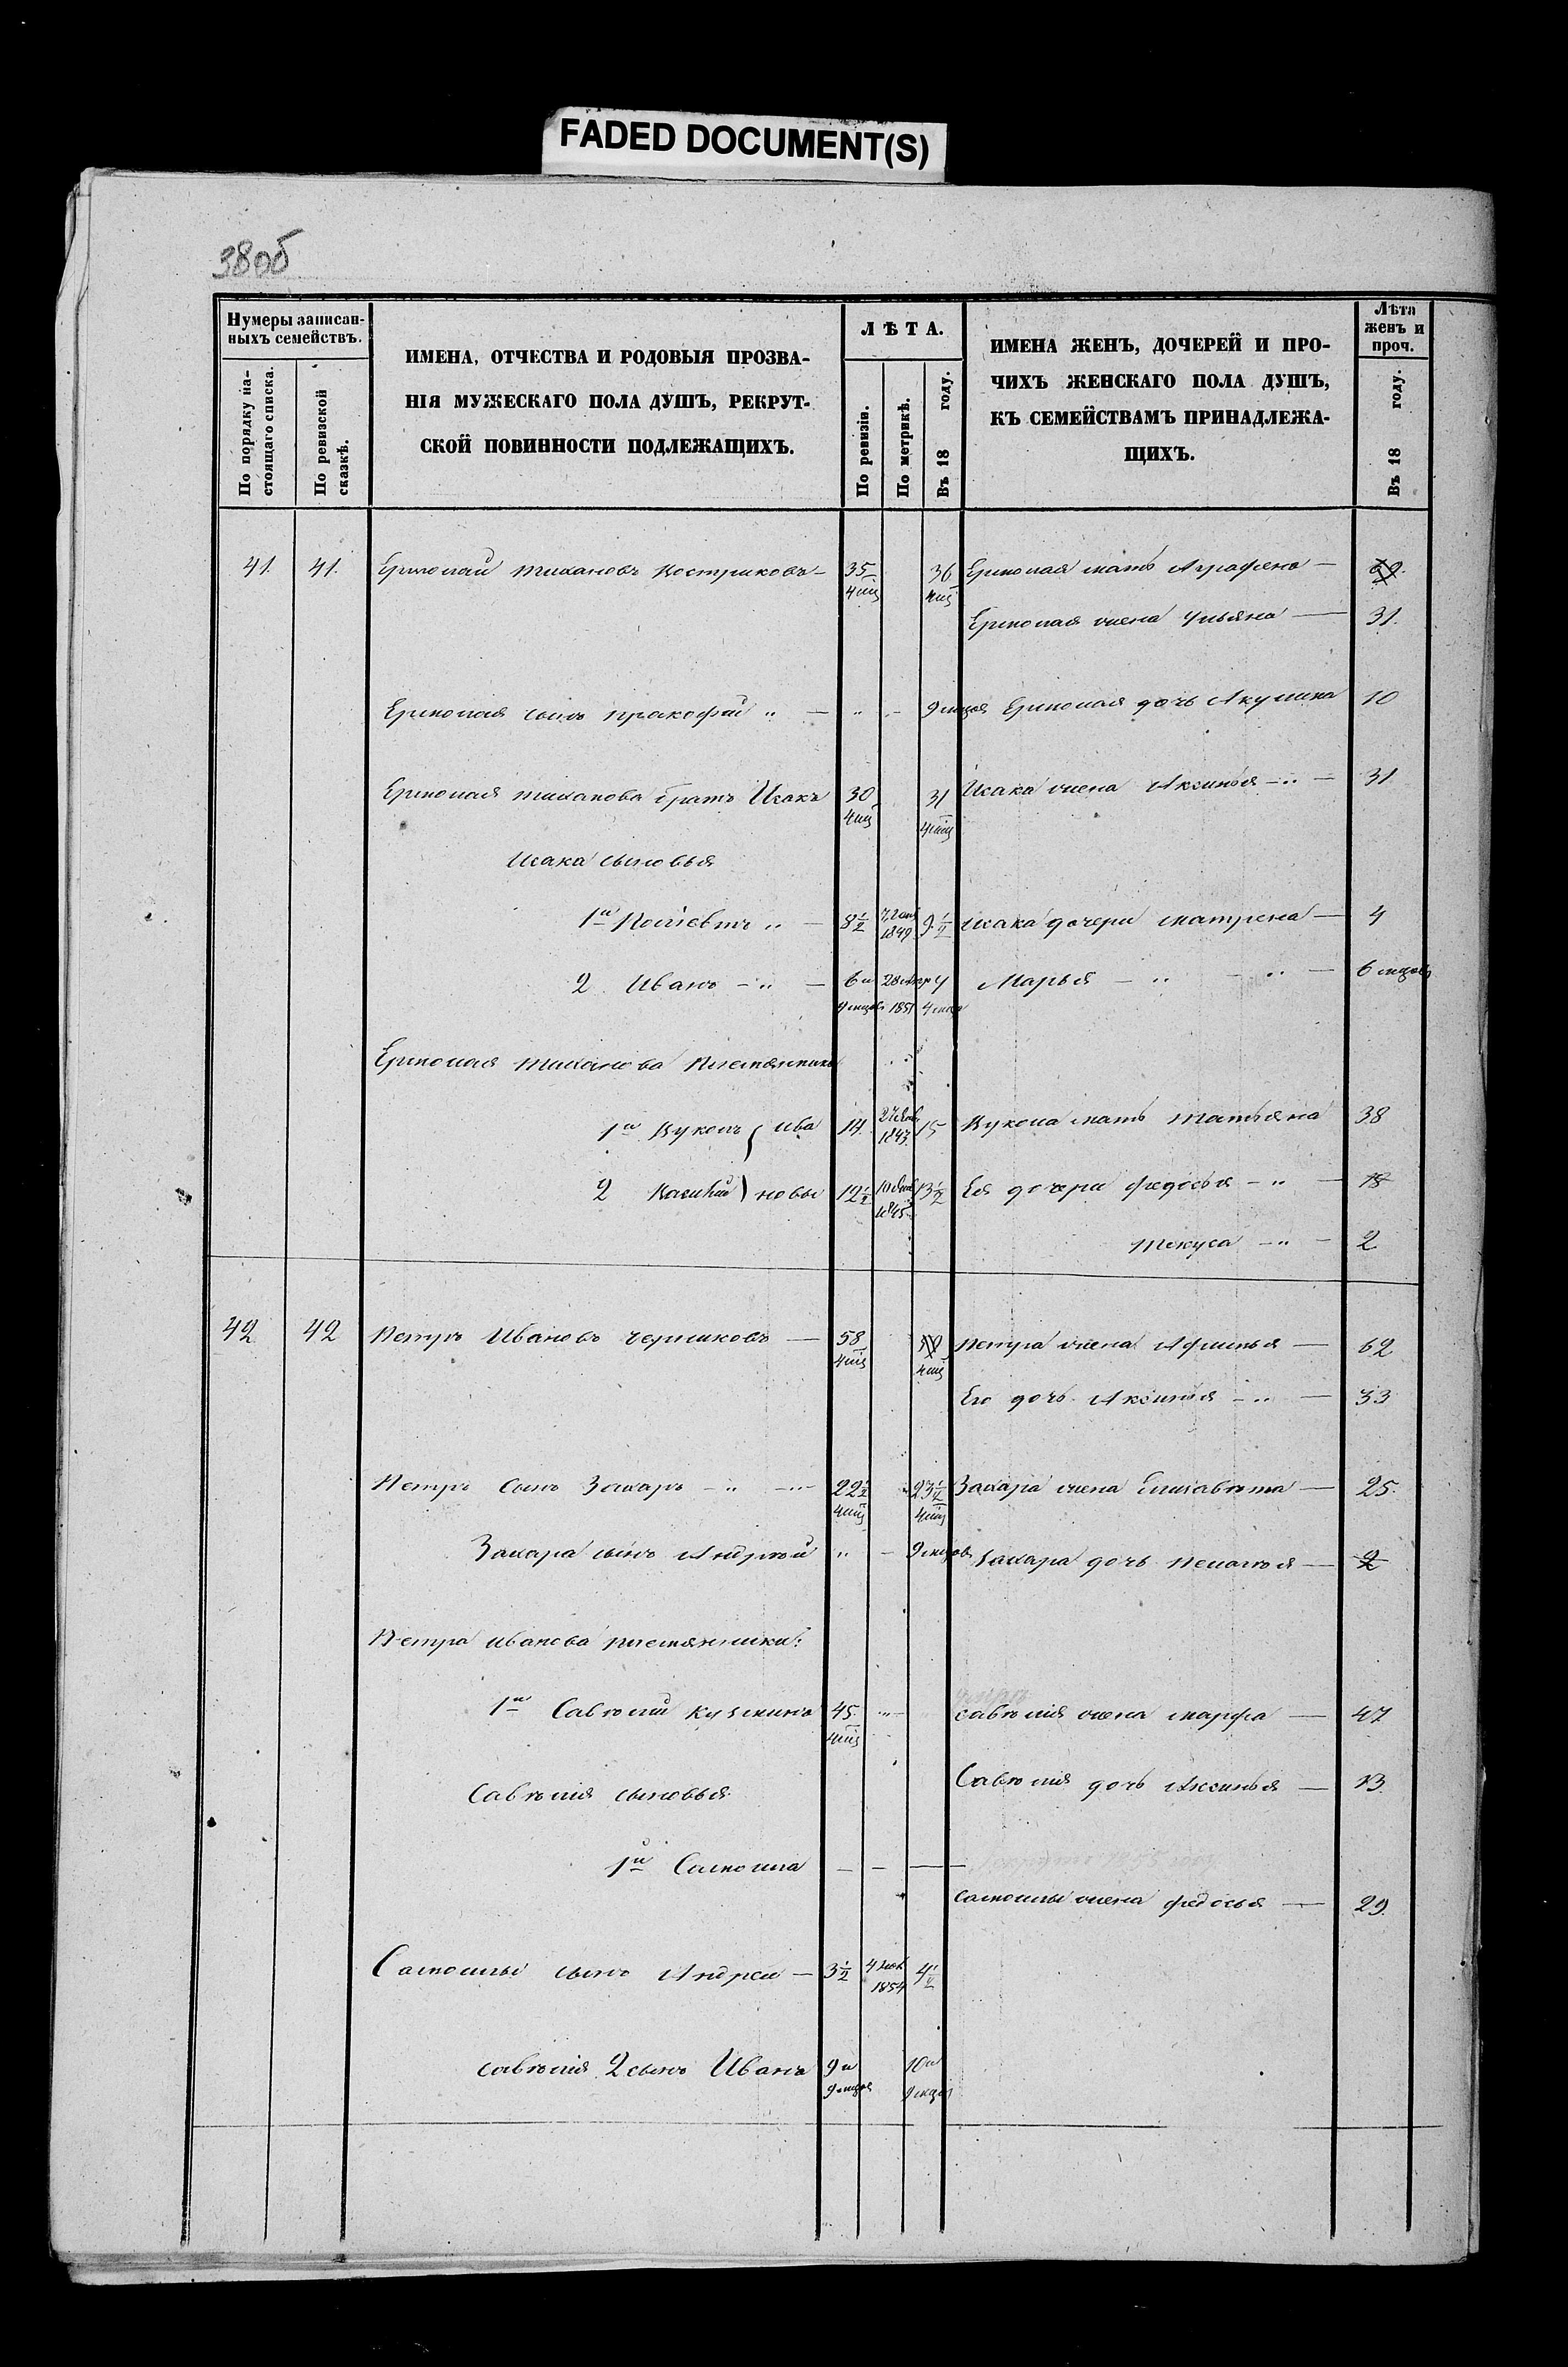 FADED DOCUMENT(S)
38об
Нумеры записан-
ныхъ семействъ.
По порядку на-
стоящаго списка.
По ревизской
сказкѣ.
ИМЕНА, ОТЧЕСТВА И РОДОВЫЯ ПРОЗВА-
НІЯ МУЖЕСКАГО ПОЛА ДУШЪ, РЕКРУТ-
СКОЙ ПОВИННОСТИ ПОДЛЕЖАЩИХЪ.
ЛѢТА.
По ревизіи.
По метрикѣ.
Въ 18 году.
ИМЕНА ЖЕНЪ, ДОЧЕРЕЙ И ПРО-
ЧИХЪ ЖЕНСКАГО ПОЛА ДУШЪ,
КЪ СЕМЕЙСТВАМЪ ПРИНАДЛЕЖА-
ЩИХЪ.
Лѣта
женъ и
проч.
Въ 18 году.
41. 41. Ермолай Тихановъ Востриковъ — 35 4 мц 36 4 мц Ермолая мать Аграфена —
Ермолая жена Ульяна — 31.
Ермолая сынъ Пракофий „ — „ — 9 мцов Ермолая дочь Акулина 10
Ермолая Тиханова братъ Исакъ 30 4 мц 31 4 мц Исака жена Аксинья — „ — 31
Исака сыновья
1й „ — 8½ 1849 9½ Исака дочери Матрена — 4
2 Иванъ — „ — 6 и 4 мцов 28 1851 4 Марья — „ — „ — 6 мцов
Ермолая Тиханова племянники
1й Вуколъ Ива 14 1843 15 Вукола мать Татьяна 38
2 новы 12½ 1845 13½ Ея дочери Федосья — „ — 18
Текуса — „ — 2
42 42 Петръ Ивановъ — 58 4 мц 59 4 мц Петра жена Афимья — 62
Его дочь Аксинья — „ — 33
Петръ сынъ Захаръ — „ — 22½ 4 мц 23½ 4 мц Захара жена Елизавета — 25.
Захара сынъ Андрей „ — 9 мцов Захара дочь Пелагея — 2
Петра Иванова племянники:
1й Савелий Кузминъ 45. 4 мц Савелия жена Марфа — 47
Савелия дочь Аксинья — 13.
Савелия сыновья
1й Самоила — — —
Самоилы жена Федосья — 29.
Самоилы сынъ Андрей — 3½ 4 1854 4½
Савелия 2 сынъ Иванъ 9 и 9 мцов 10 и 9 мцов